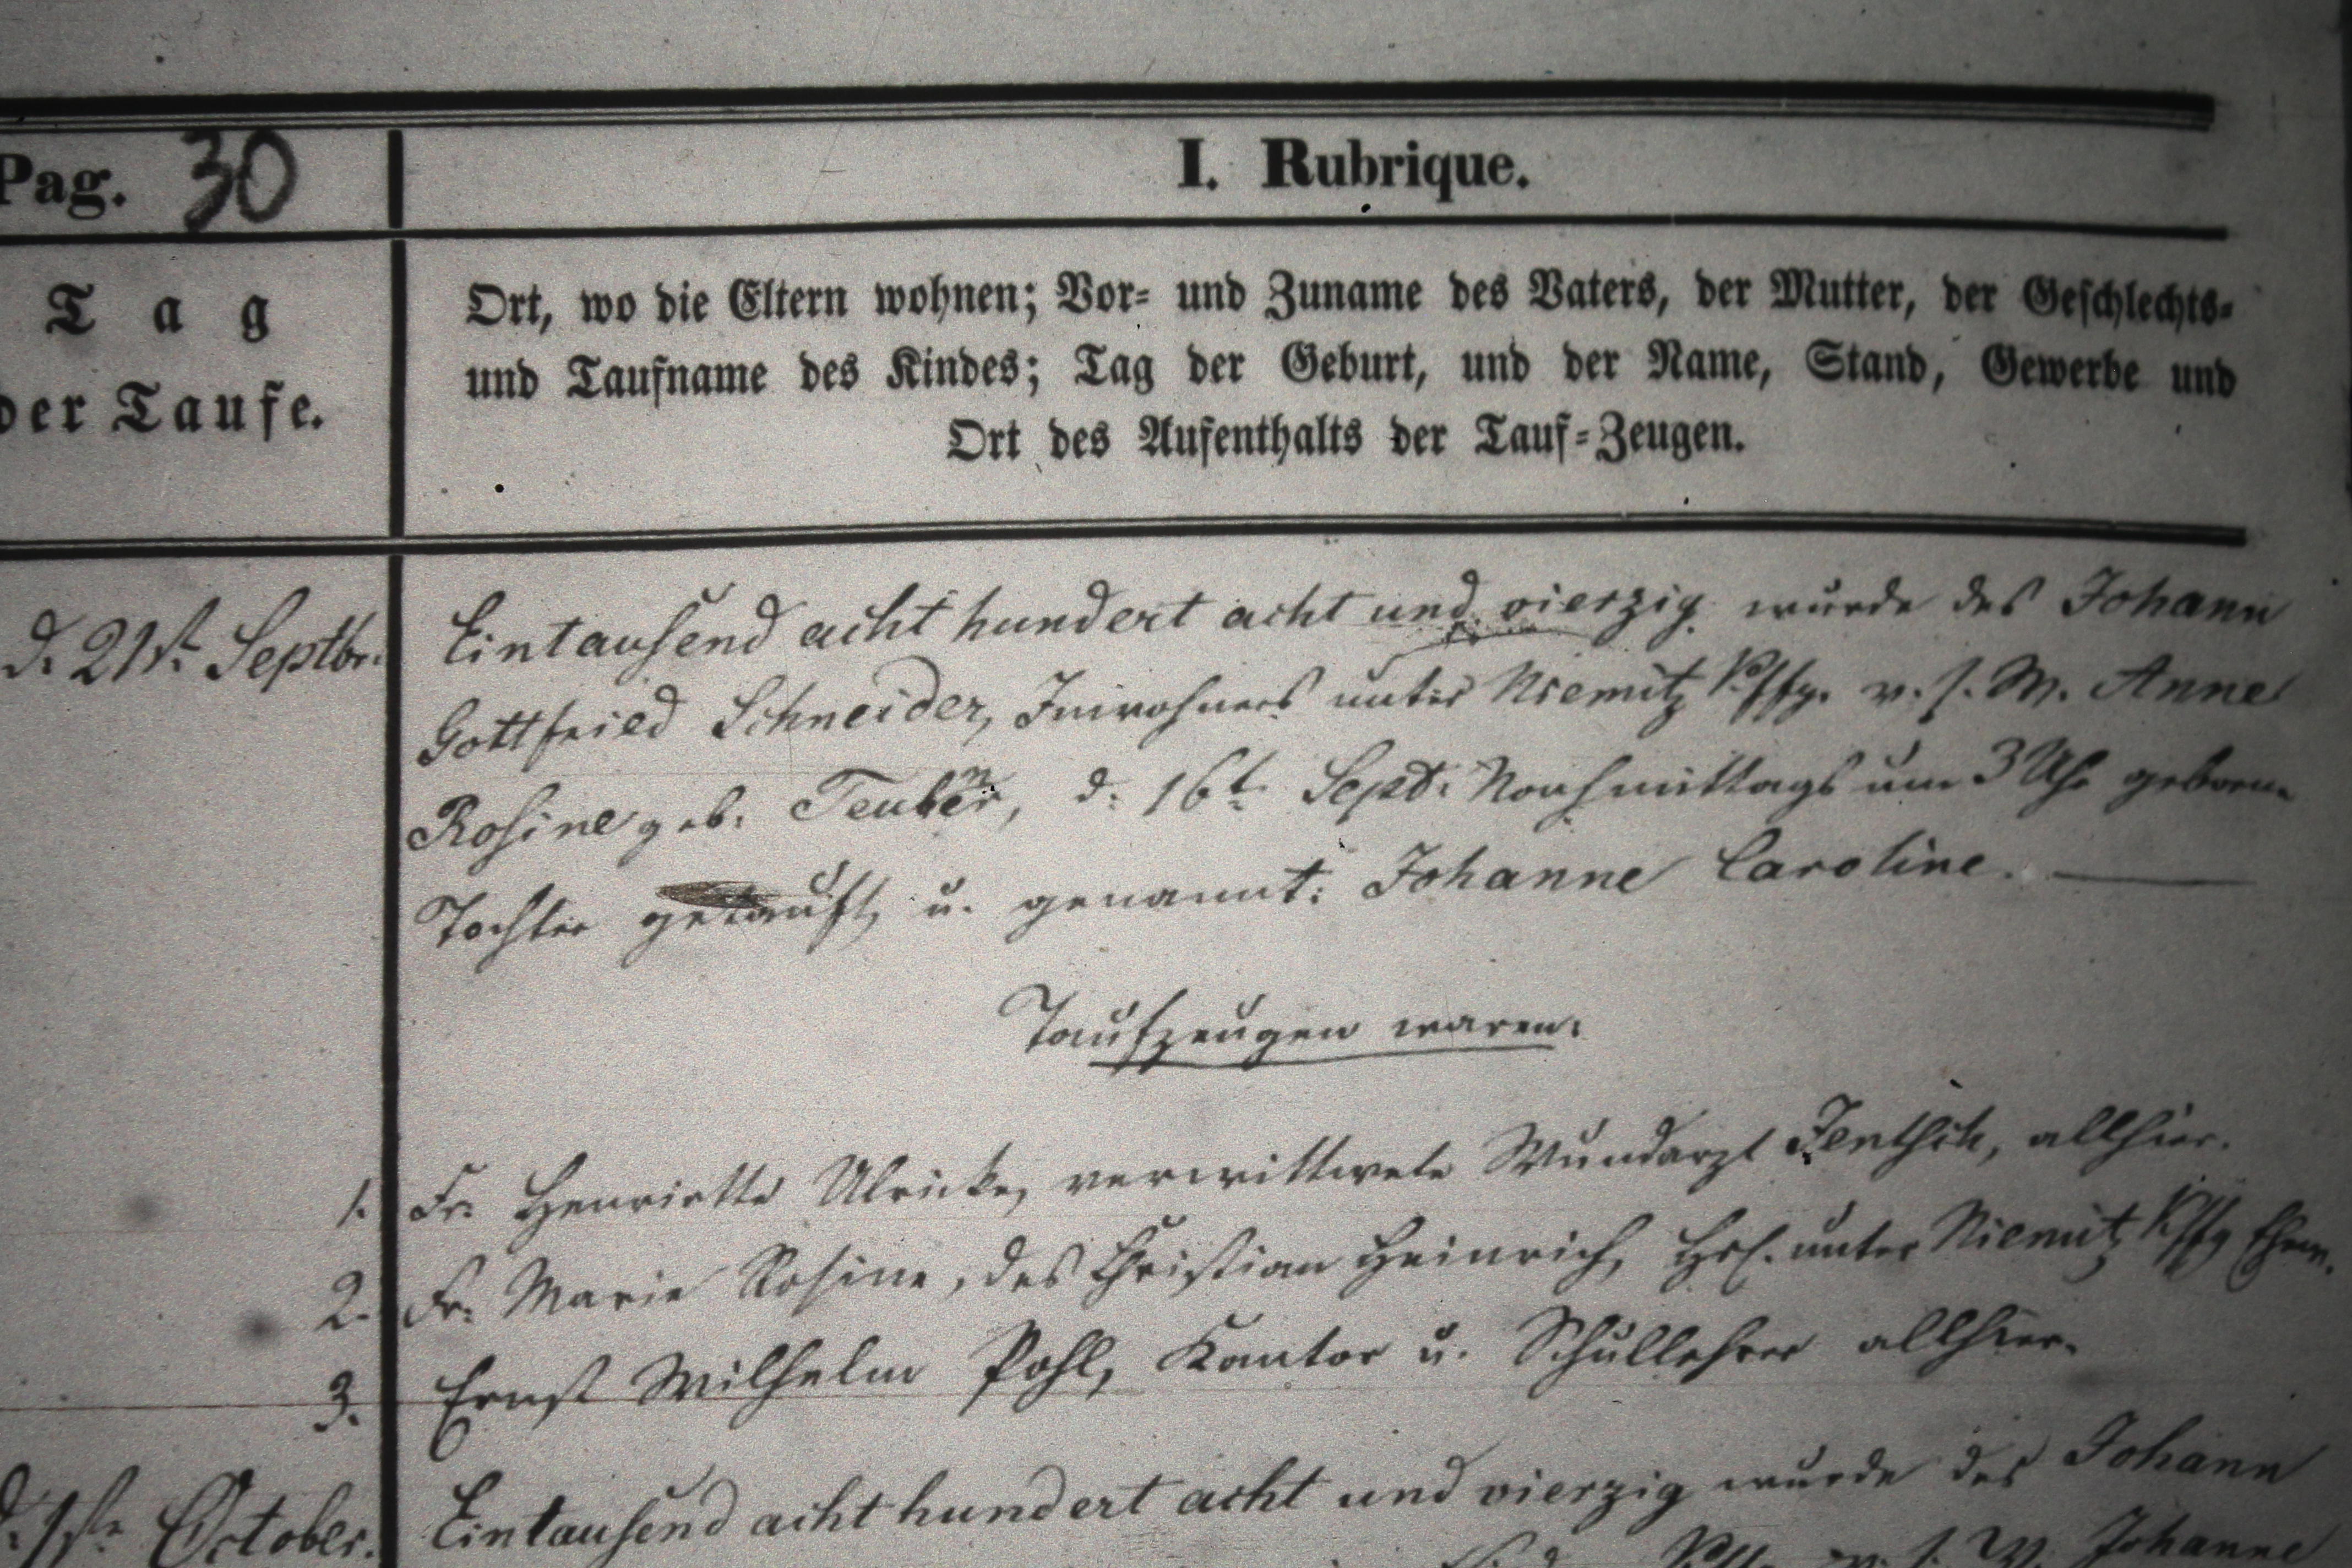 Pag. 30
I. Rubrique.
Tag
der Taufe.
Ort, wo die Eltern wohnen; Vor- und Zuname des Vaters, der Mutter, der Geschlechts-
und Taufname des Kindes; Tag der Geburt, und der Name, Stand, Gewerbe und
Ort des Aufenthalts der Tauf-Zeugen.
d. 21st. Septbr.
Eintausend acht hundert acht und vierzig wurde des Johann
Gottfried Schneider, Inwohners unter Niemitz v. s. W. Anne
Rosine geb. Teuber, d. 16t. Sept. Nachmittags um 3 Uhr geboren.
Tochter getauft u. genannt: Johanne Caroline.
Taufzeugen waren:
1. Fr. Henriette Ulricke, verwittwete Wundarzt Jentsch, allhier.
2. Fr. Marie Rosine, des Christian Heinrich, unter Niemitz
3. Ernst Wilhelm Pohl, Kantor u. Schullehrer allhier.
d. 1ste October.
Eintausend acht hundert acht und vierzig wurde des Johann
v. s. W. Johanne